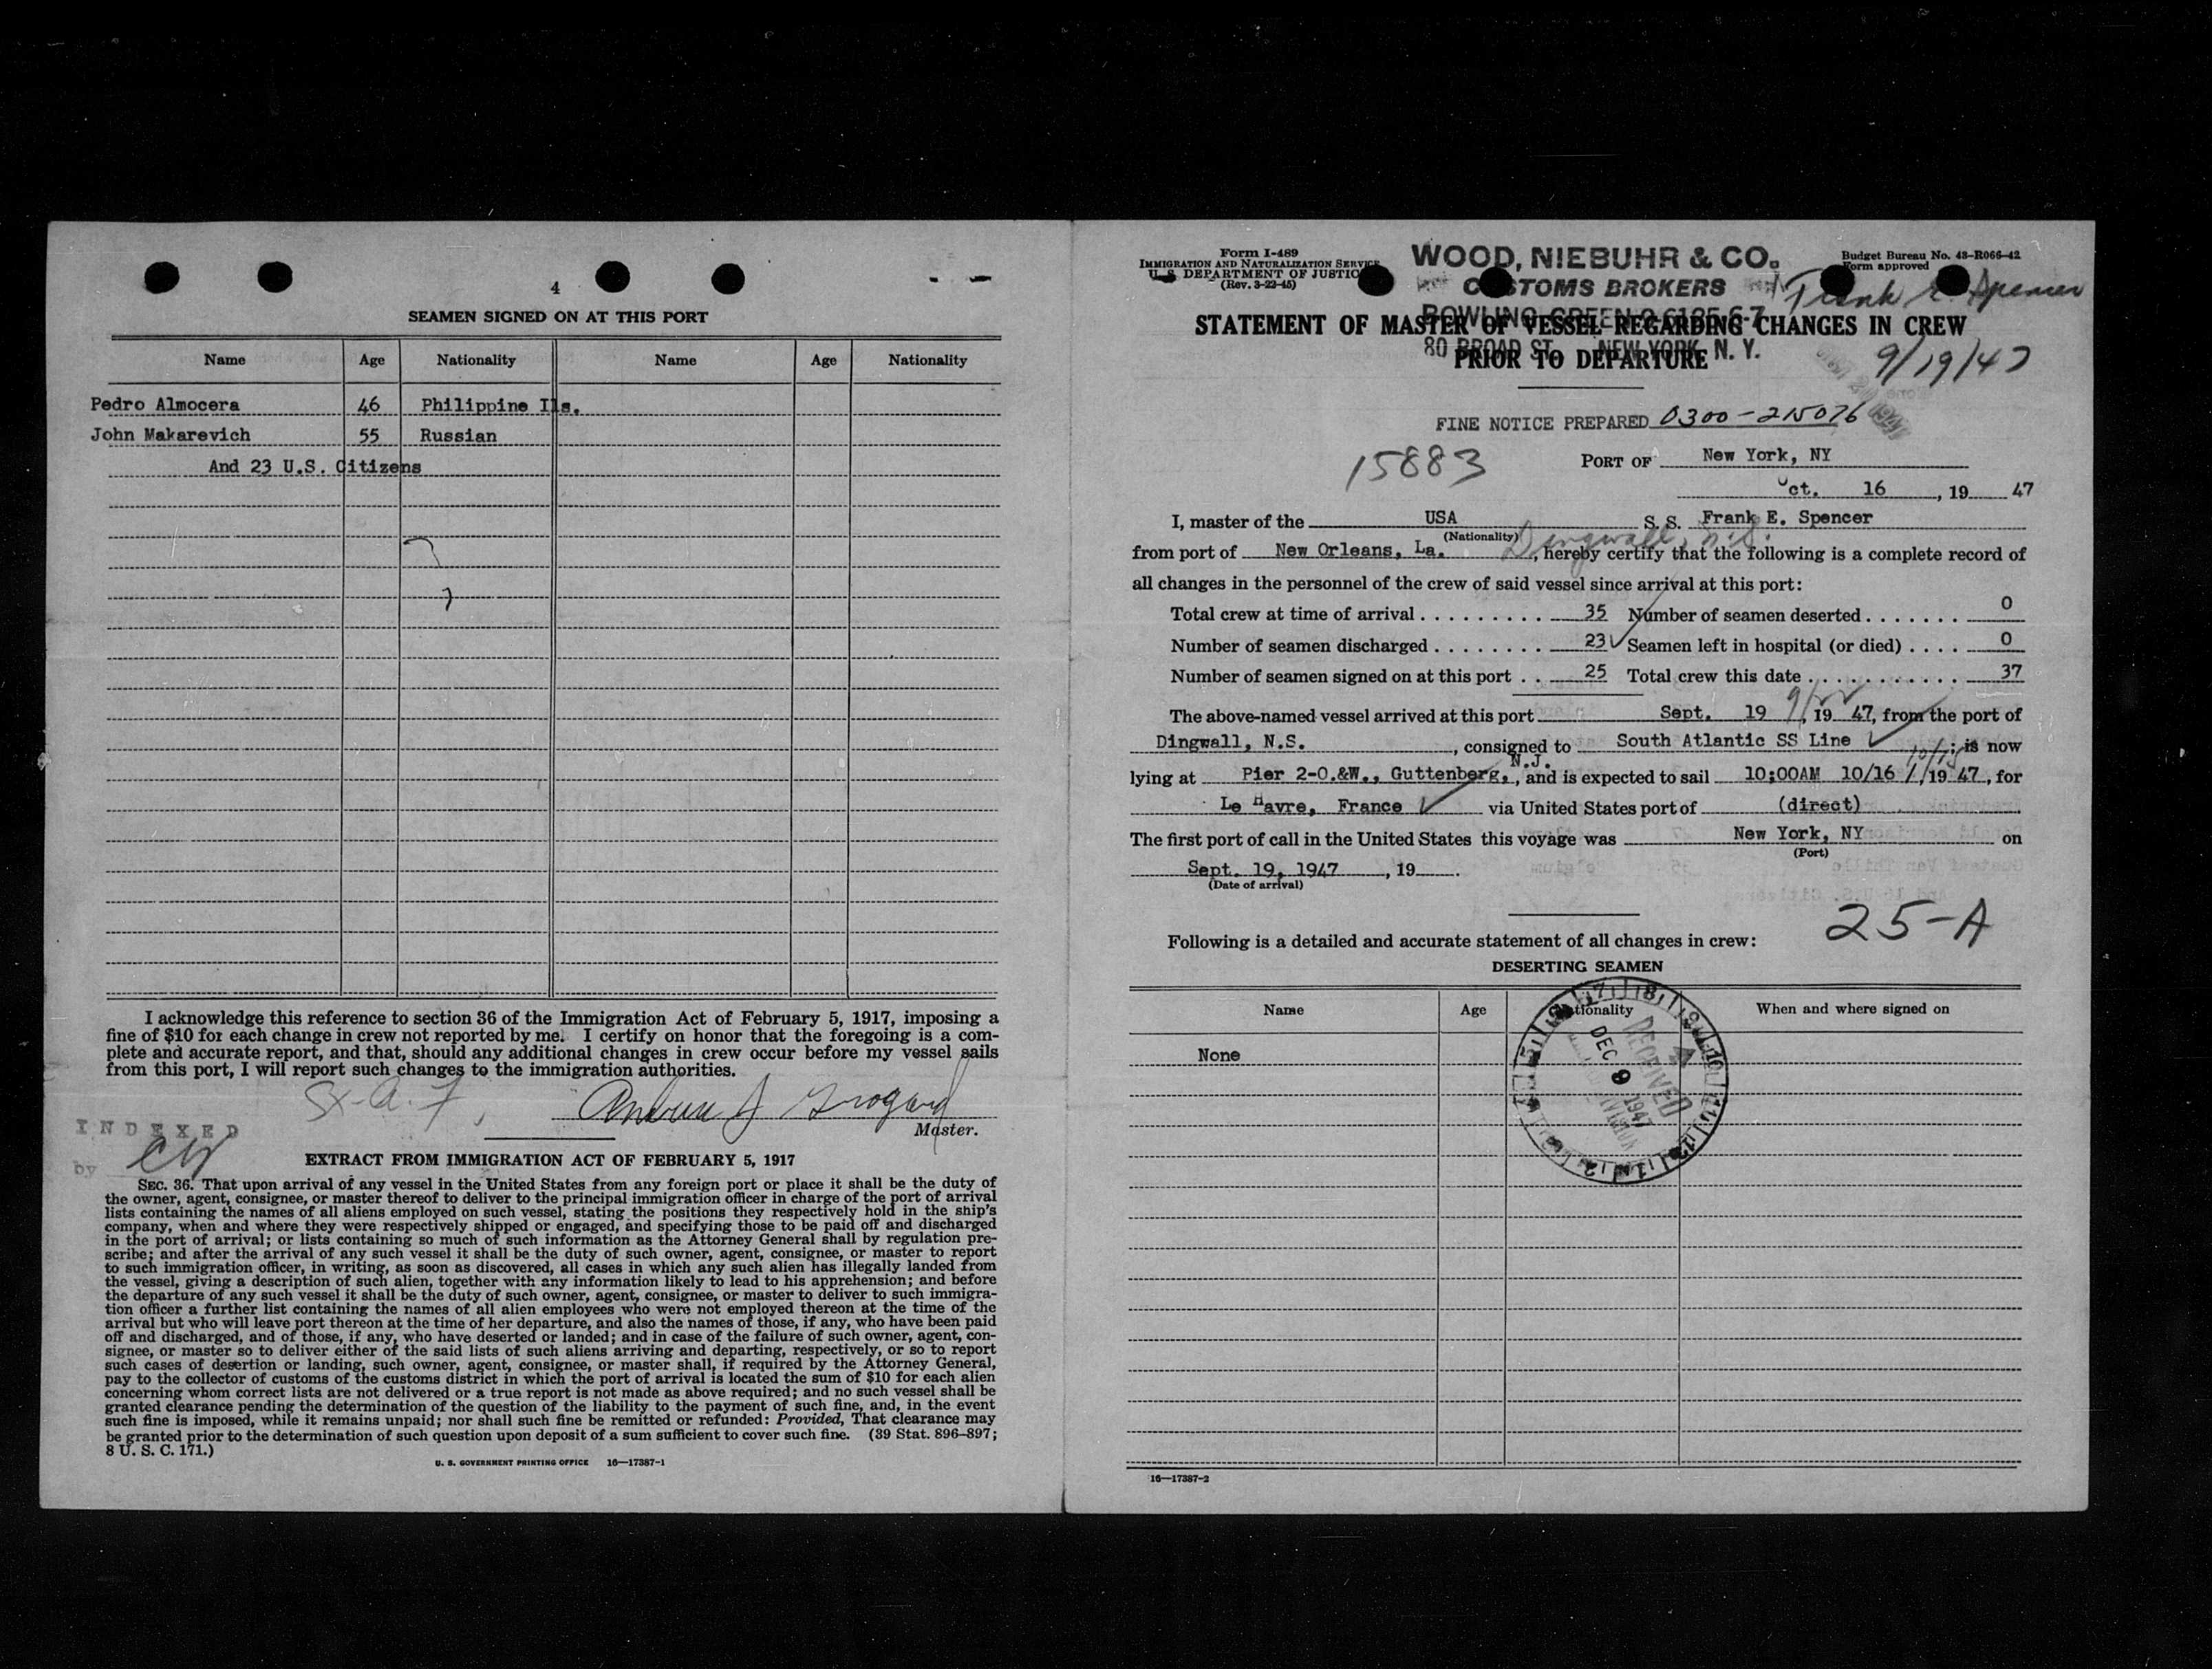 4
SEAMEN SIGNED ON AT THIS PORT
Name Age Nationality Name Age Nationality
Pedro Almocera 46 Philippine Ils.
John Makarevich 55 Russian
And 23 U.S. Citizens
I acknowledge this reference to section 36 of the Immigration Act of February 5, 1917, imposing a
fine of $10 for each change in crew not reported by me. I certify on honor that the foregoing is a com-
plete and accurate report, and that, should any additional changes in crew occur before my vessel sails
from this port, I will report such changes to the immigration authorities.
Master.
INDEXED
by
EXTRACT FROM IMMIGRATION ACT OF FEBRUARY 5, 1917
SEC. 36. That upon arrival of any vessel in the United States from any foreign port or place it shall be the duty of
the owner, agent, consignee, or master thereof to deliver to the principal immigration officer in charge of the port of arrival
lists containing the names of all aliens employed on such vessel, stating the positions they respectively hold in the ship's
company, when and where they were respectively shipped or engaged, and specifying those to be paid off and discharged
in the port of arrival; or lists containing so much of such information as the Attorney General shall by regulation pre-
scribe; and after the arrival of any such vessel it shall be the duty of such owner, agent, consignee, or master to report
to such immigration officer, in writing, as soon as discovered, all cases in which any such alien has illegally landed from
the vessel, giving a description of such alien, together with any information likely to lead to his apprehension; and before
the departure of any such vessel it shall be the duty of such owner, agent, consignee, or master to deliver to such immigra-
tion officer a further list containing the names of all alien employees who were not employed thereon at the time of the
arrival but who will leave port thereon at the time of her departure, and also the names of those, if any, who have been paid
off and discharged, and of those, if any, who have deserted or landed; and in case of the failure of such owner, agent, con-
signee, or master so to deliver either of the said lists of such aliens arriving and departing, respectively, or so to report
such cases of desertion or landing, such owner, agent, consignee, or master shall, if required by the Attorney General,
pay to the collector of customs of the customs district in which the port of arrival is located the sum of $10 for each alien
concerning whom correct lists are not delivered or a true report is not made as above required; and no such vessel shall be
granted clearance pending the determination of the question of the liability to the payment of such fine, and, in the event
such fine is imposed, while it remains unpaid; nor shall such fine be remitted or refunded: Provided, That clearance may
be granted prior to the determination of such question upon deposit of a sum sufficient to cover such fine. (39 Stat. 896–897;
8 U. S. C. 171.)
U. S. GOVERNMENT PRINTING OFFICE 16—17387-1
Form I-489
IMMIGRATION AND NATURALIZATION SERVICE
U. S. DEPARTMENT OF JUSTICE
(Rev. 3-22-45)
WOOD, NIEBUHR & CO.
CUSTOMS BROKERS
BOWLING GREEN 9-6185-6-7
80 BROAD ST. NEW YORK, N. Y.
Budget Bureau No. 43-R066-42
Form approved
Frank E. Spencer
STATEMENT OF MASTER OF VESSEL REGARDING CHANGES IN CREW
PRIOR TO DEPARTURE
9/19/47
FINE NOTICE PREPARED 0300-215076
15883
PORT OF New York, NY
Oct. 16, 19 47
I, master of the USA S. S. Frank E. Spencer
(Nationality)
from port of New Orleans, La. Dingwall, N.S., hereby certify that the following is a complete record of
all changes in the personnel of the crew of said vessel since arrival at this port:
Total crew at time of arrival 35 Number of seamen deserted 0
Number of seamen discharged 23 Seamen left in hospital (or died) 0
Number of seamen signed on at this port 25 Total crew this date 37
The above-named vessel arrived at this port Sept. 19 9/22, 19 47, from the port of
Dingwall, N.S., consigned to South Atlantic SS Line; is now
lying at Pier 2-O.&W., Guttenberg, N.J., and is expected to sail 10:00AM 10/16, 19 47, for
Le Havre, France via United States port of (direct)
The first port of call in the United States this voyage was New York, NY on
(Port)
Sept. 19, 1947, 19
(Date of arrival)
25-A
Following is a detailed and accurate statement of all changes in crew:
DESERTING SEAMEN
Name Age Nationality When and where signed on
None
RECEIVED
DEC 9 1947
16—17387-2